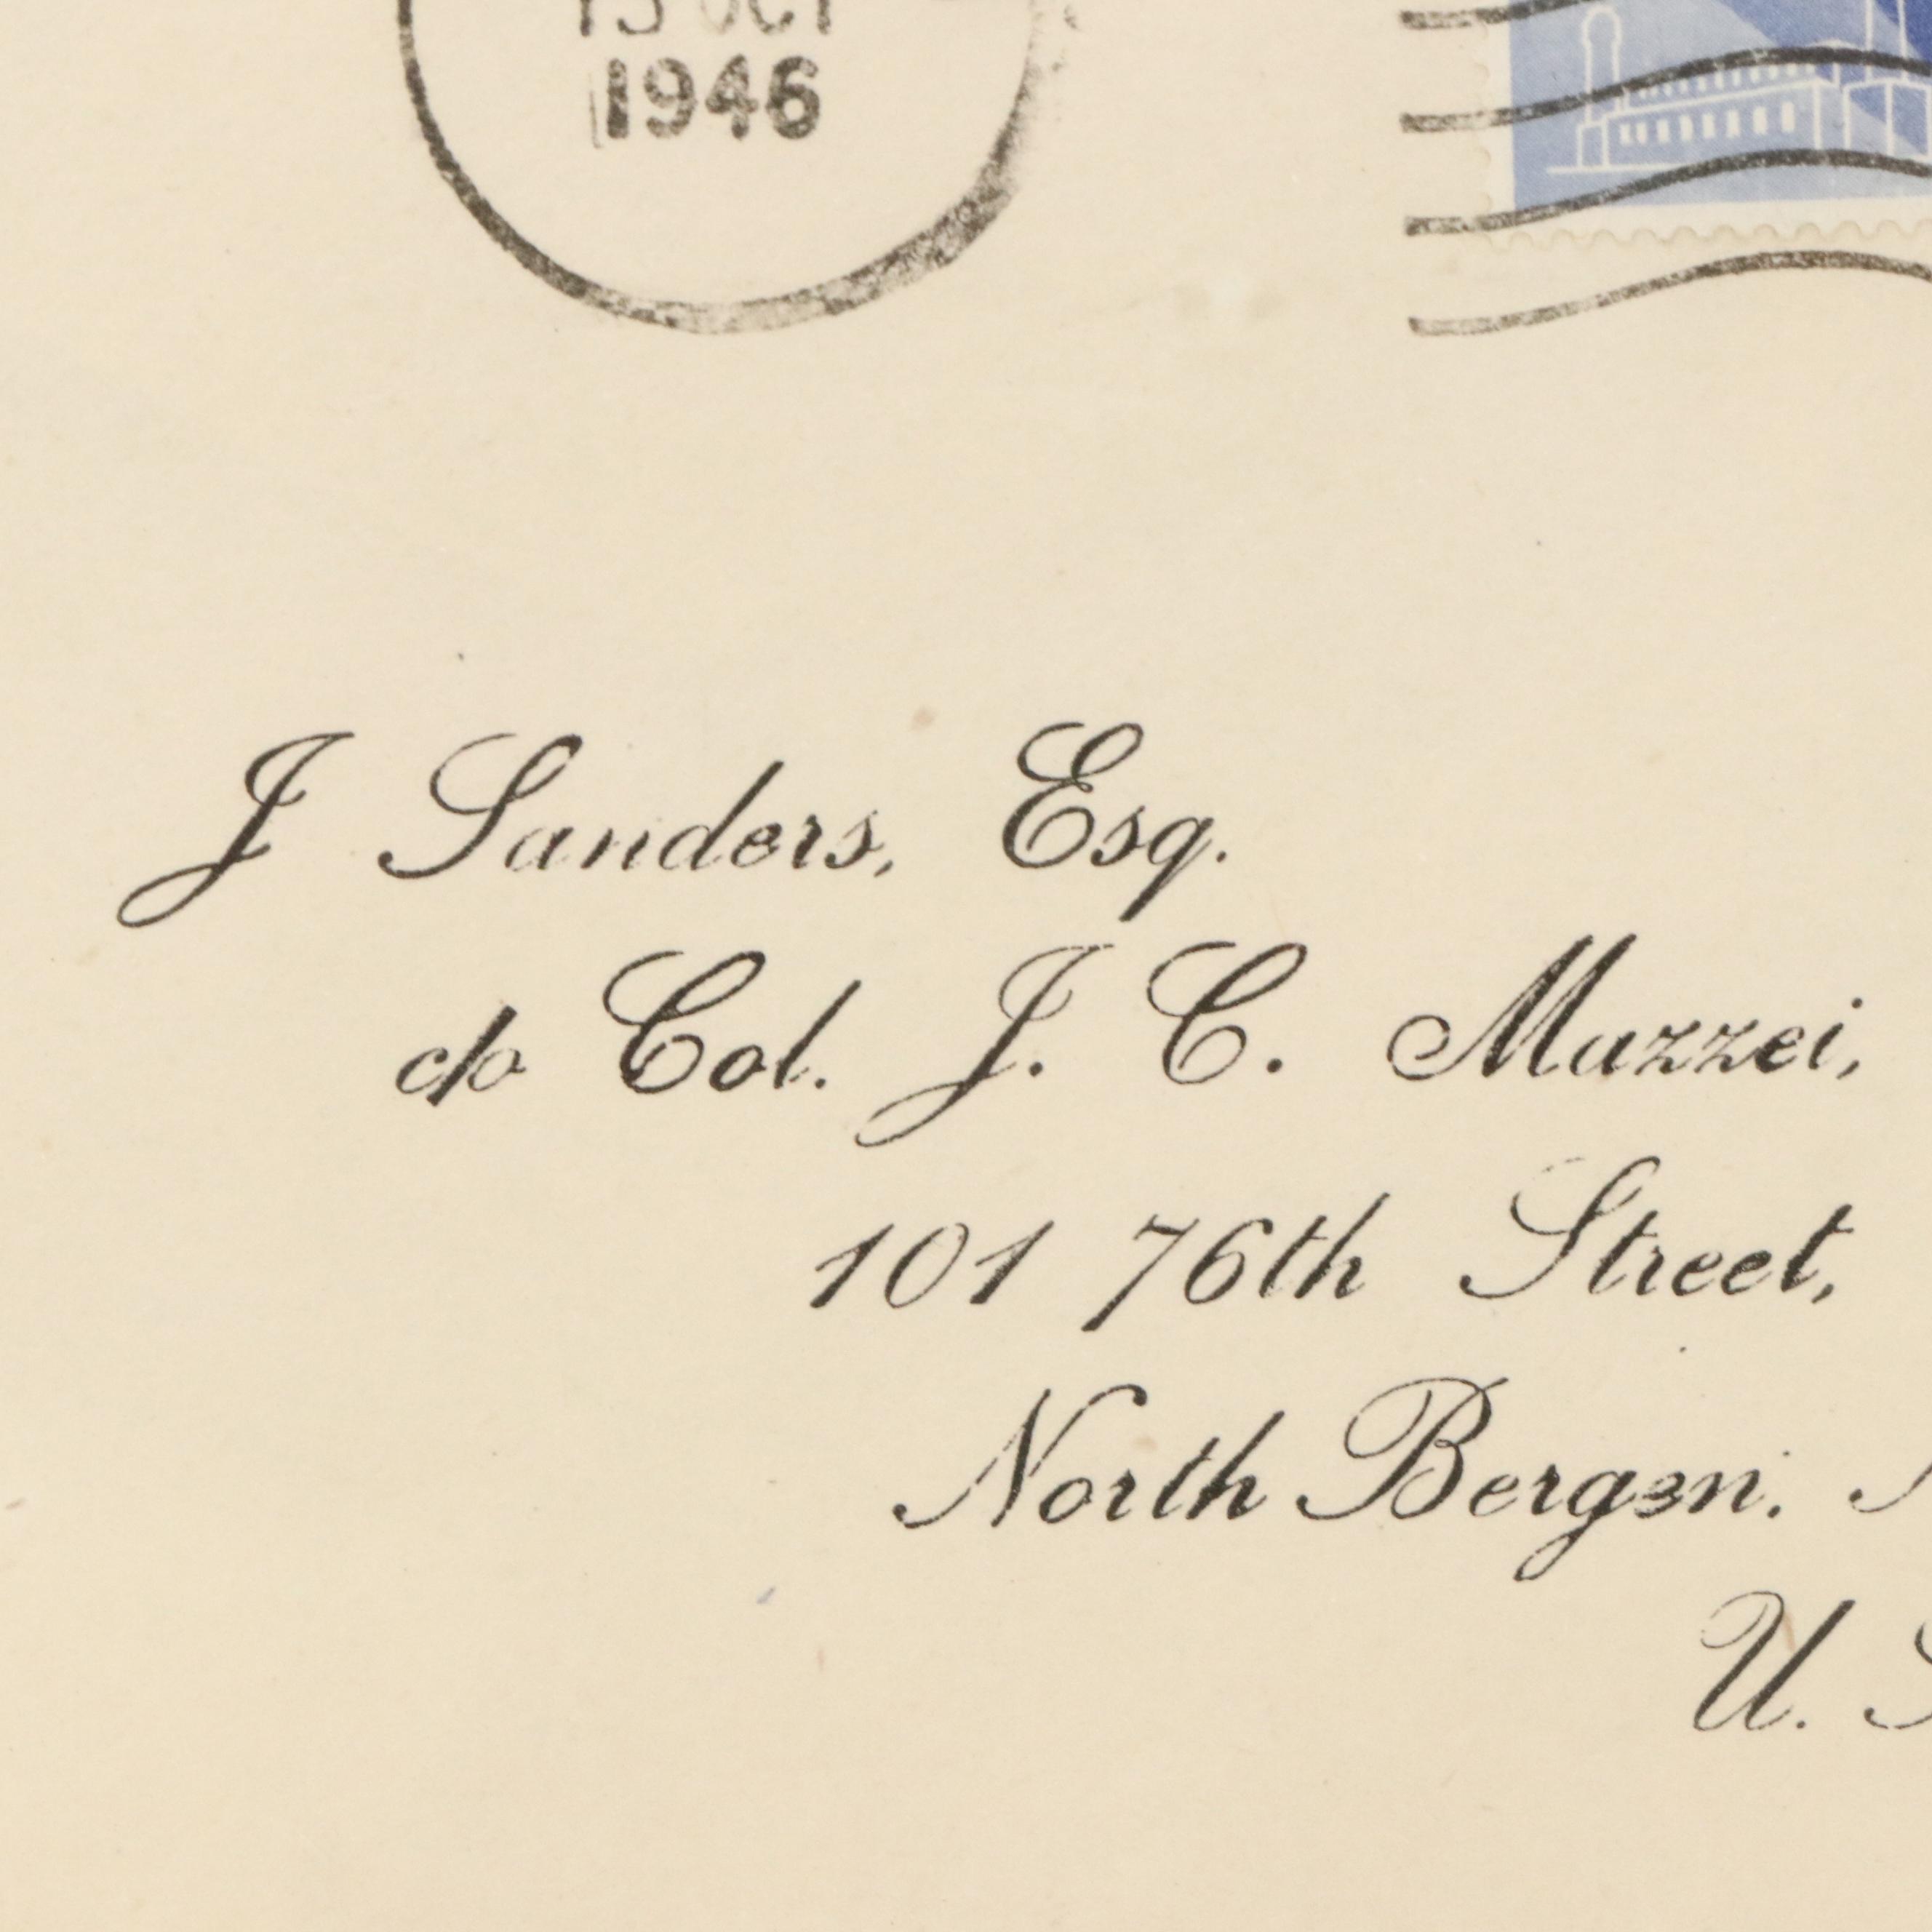 OCT
1946
J Sanders, Esq.
c/o Col. J. C. Mazzei,
101 76th Street,
North Bergen.
U.